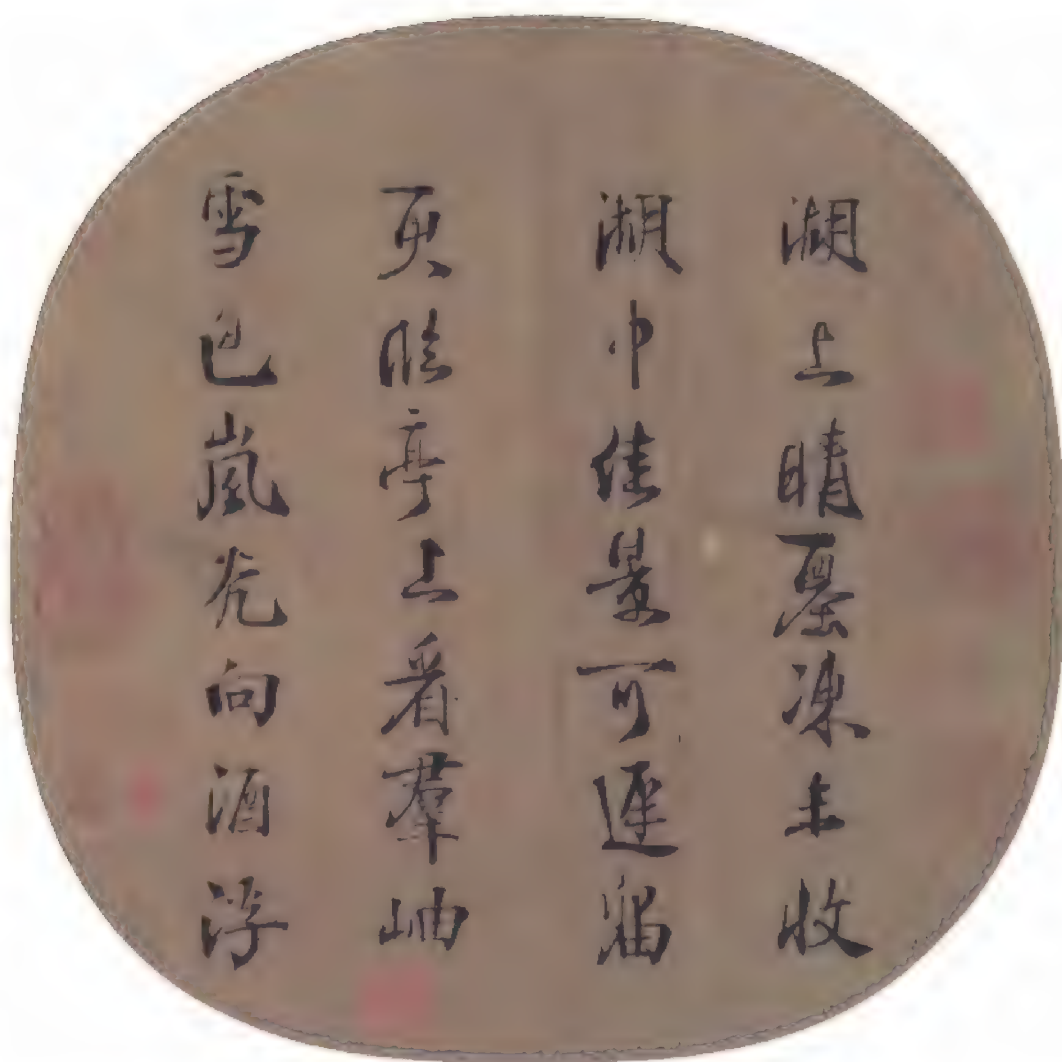 湖上晴墨凍未收
湖中佳景可遲留
更臨亭上看羣岫
雪色嵐光向酒浮